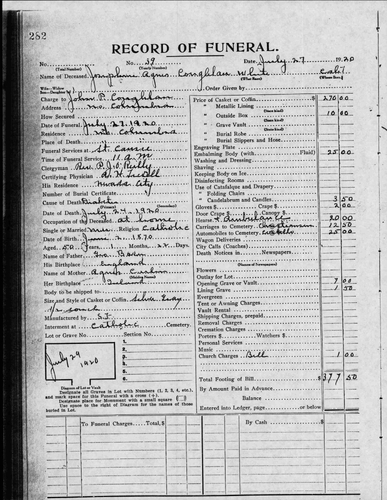 282
RECORD OF FUNERAL.
No. No. 39 Date July 27 1920
(Total Number) (Yearly Number)
Name of Deceased Josephine Agnes Coughlan White Cal'f
(What Race) (Where Born)
Charge to John P. Coughlan
Address No. Columbia
How Secured
Date of Funeral July 27, 1920
Residence No. Columbia
Place of Death
Funeral Services at St. Canice
Time of Funeral Service 11 a.m
Clergyman Rev. P. J. O'Reilly
Certifying Physician
His Residence Nevada City
Number of Burial Certificate
Cause of Death Diabetes
Date of Death July 24, 1920
Occupation of the Deceased at Home
Single or Married Religion Catholic
Date of Birth June 2, 1870
Aged 50 Years, Months, 22 Days.
Name of Father Geo.
His Birthplace England
Name of Mother Agnes
(Maiden Name)
Her Birthplace Ireland
Body to be shipped to
Size and Style of Casket or Coffin Silver Gray
couch
Manufactured by S.F.
Interment at Catholic Cemetery.
Lot or Grave No. Section No.
July 29, 1920
1.
2.
3.
4.
5.
6.
Diagram of Lot or Vault
Designate all Graves in Lot with Numbers (1, 2, 3, 4, etc.), and mark space for this Funeral with a cross (+).
Designate place for Monument with a small square
Use space to the right of Diagram for the names of those buried in Lot.
Order Given by
Price of Casket or Coffin $ 270 00
Metallic Lining
" Outside Box 10 00
" Grave Vault
" Burial Robe
" Burial Slippers and Hose
Engraving Plate
Embalming Body (with Fluid) $ 25 00
Washing and Dressing
Shaving
Keeping Body on Ice
Disinfecting Rooms
Use of Catafalque and Drapery
" Folding Chairs
" Candelabrum and Candles 3 50
Gloves $ 2.00 Crape $ 2 00
Door Crape $ Canopy $
Hearse & Ambulance 20 00
Carriages to Cemetery 12 50
Automobiles to Cemetery 25 00
Wagon Deliveries
City Calls to
Death Notices in Newspapers
(Names of Newspapers)
Flowers
Outlay for Lot
Opening Grave or Vault 7 00
Lining Grave 1 50
Evergreen
Tent or Awning Charges
Vault Rental
Shipping Charges, prepaid
Removal Charges
Cremation Charges
Porters $ Watchers $
Personal Services
Music
Church Charges Bill 1 00
Total Footing of Bill $ 377 50
By Amount Paid in Advance
Balance
Entered into Ledger, page or below
To Funeral Charges Total, $ By Cash $